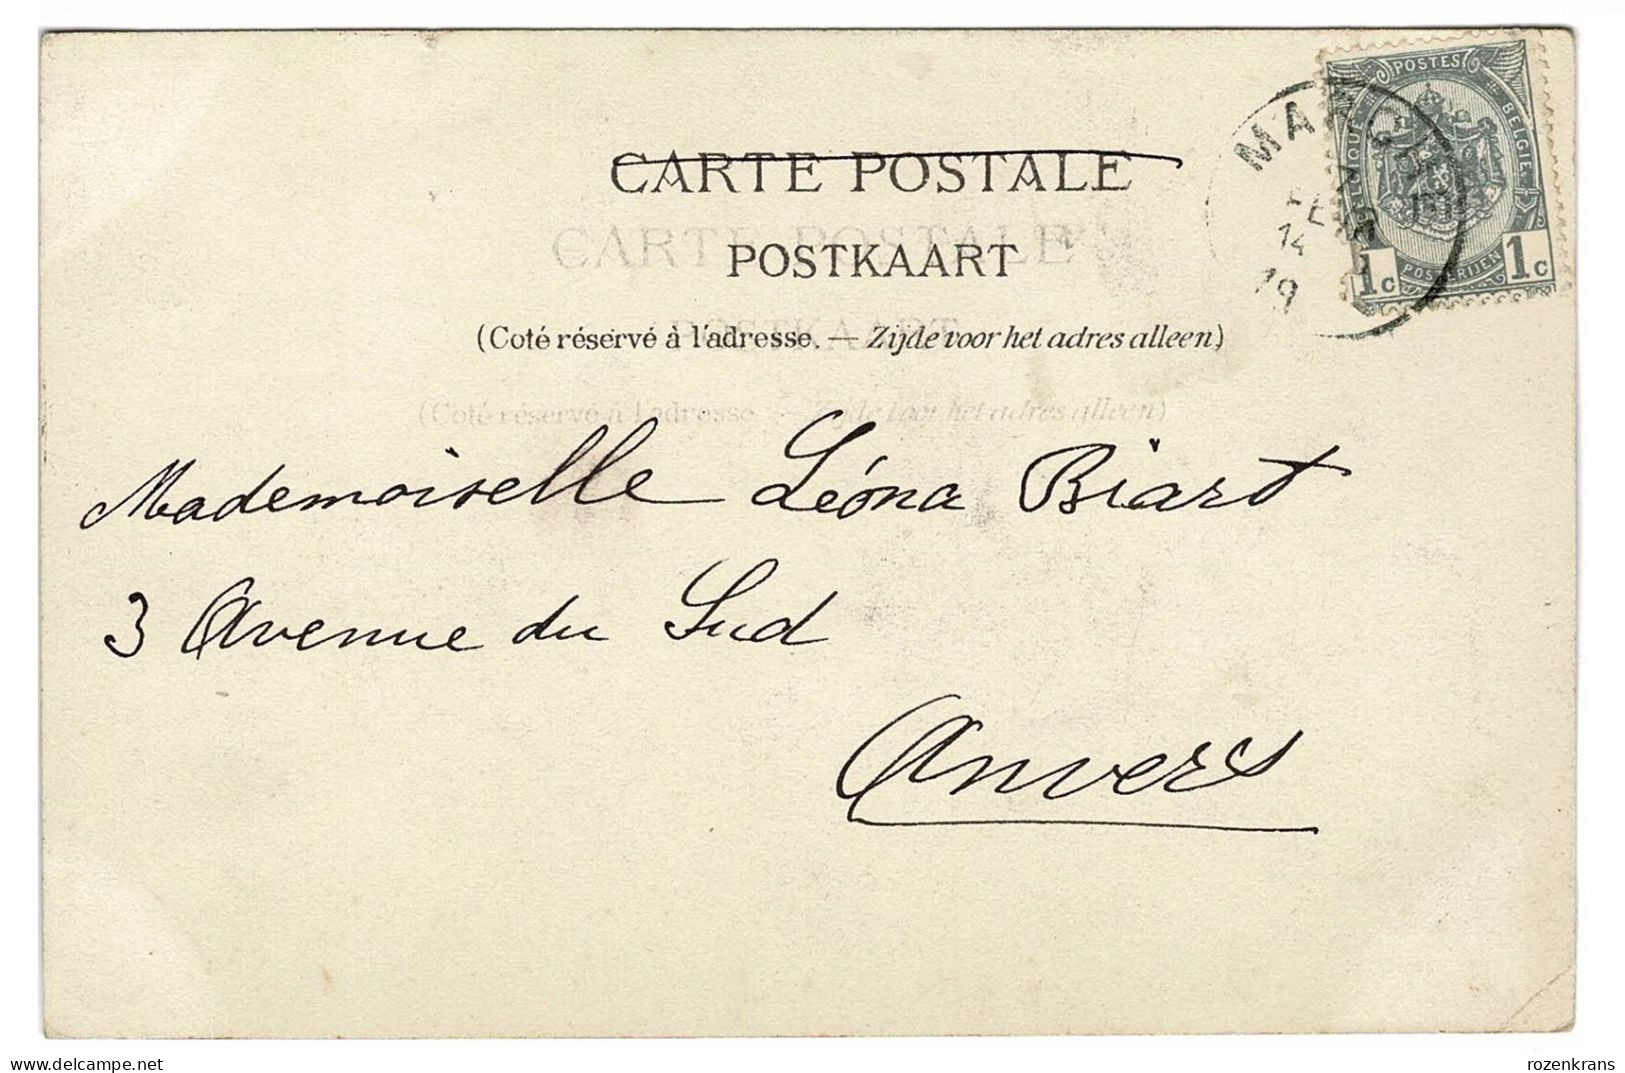 CARTE POSTALE
POSTKAART
(Coté réservé à l'adresse. — Zijde voor het adres alleen)
CARTE POSTALE
POSTKAART
(Coté réservé à l'adresse — Zijde voor het adres alleen)
POSTES
BELGIQUE BELGIE
POSTERIJEN
1c 1c
14
19
Mademoiselle Léona Biart
3 Avenue du Sud
Anvers
www.delcampe.net
rozenkrans